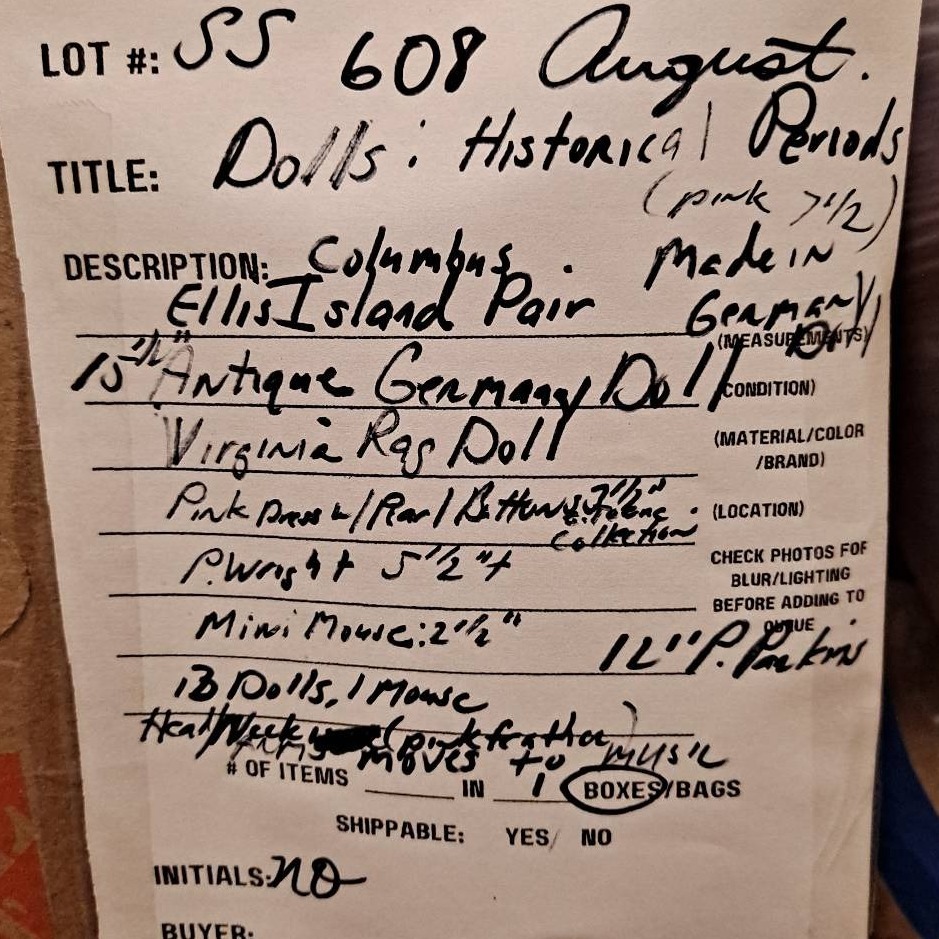 LOT #: SS 608 August.
TITLE: Dolls: Historical Periods
(pink 7 1/2)
DESCRIPTION: Columbus. Made in
Ellis Island Pair Germany
(MEASUREMENTS)
15 1/2" Antique Germany Doll (CONDITION)
Virginia Rag Doll (MATERIAL/COLOR
/BRAND)
Pink Dress w/Pearl Buttons 7 1/2" (LOCATION)
Collection
P.Wright 5 1/2" CHECK PHOTOS FOR
BLUR/LIGHTING
BEFORE ADDING TO
QUEUE
Mini Mouse: 2 1/2" 12" P. Parkins
13 Dolls, 1 Mouse
Head/Neck (pink feather)
Arms moves to music
# OF ITEMS ____ IN 1 BOXES/BAGS
SHIPPABLE: YES/ NO
INITIALS: NO
BUYER: